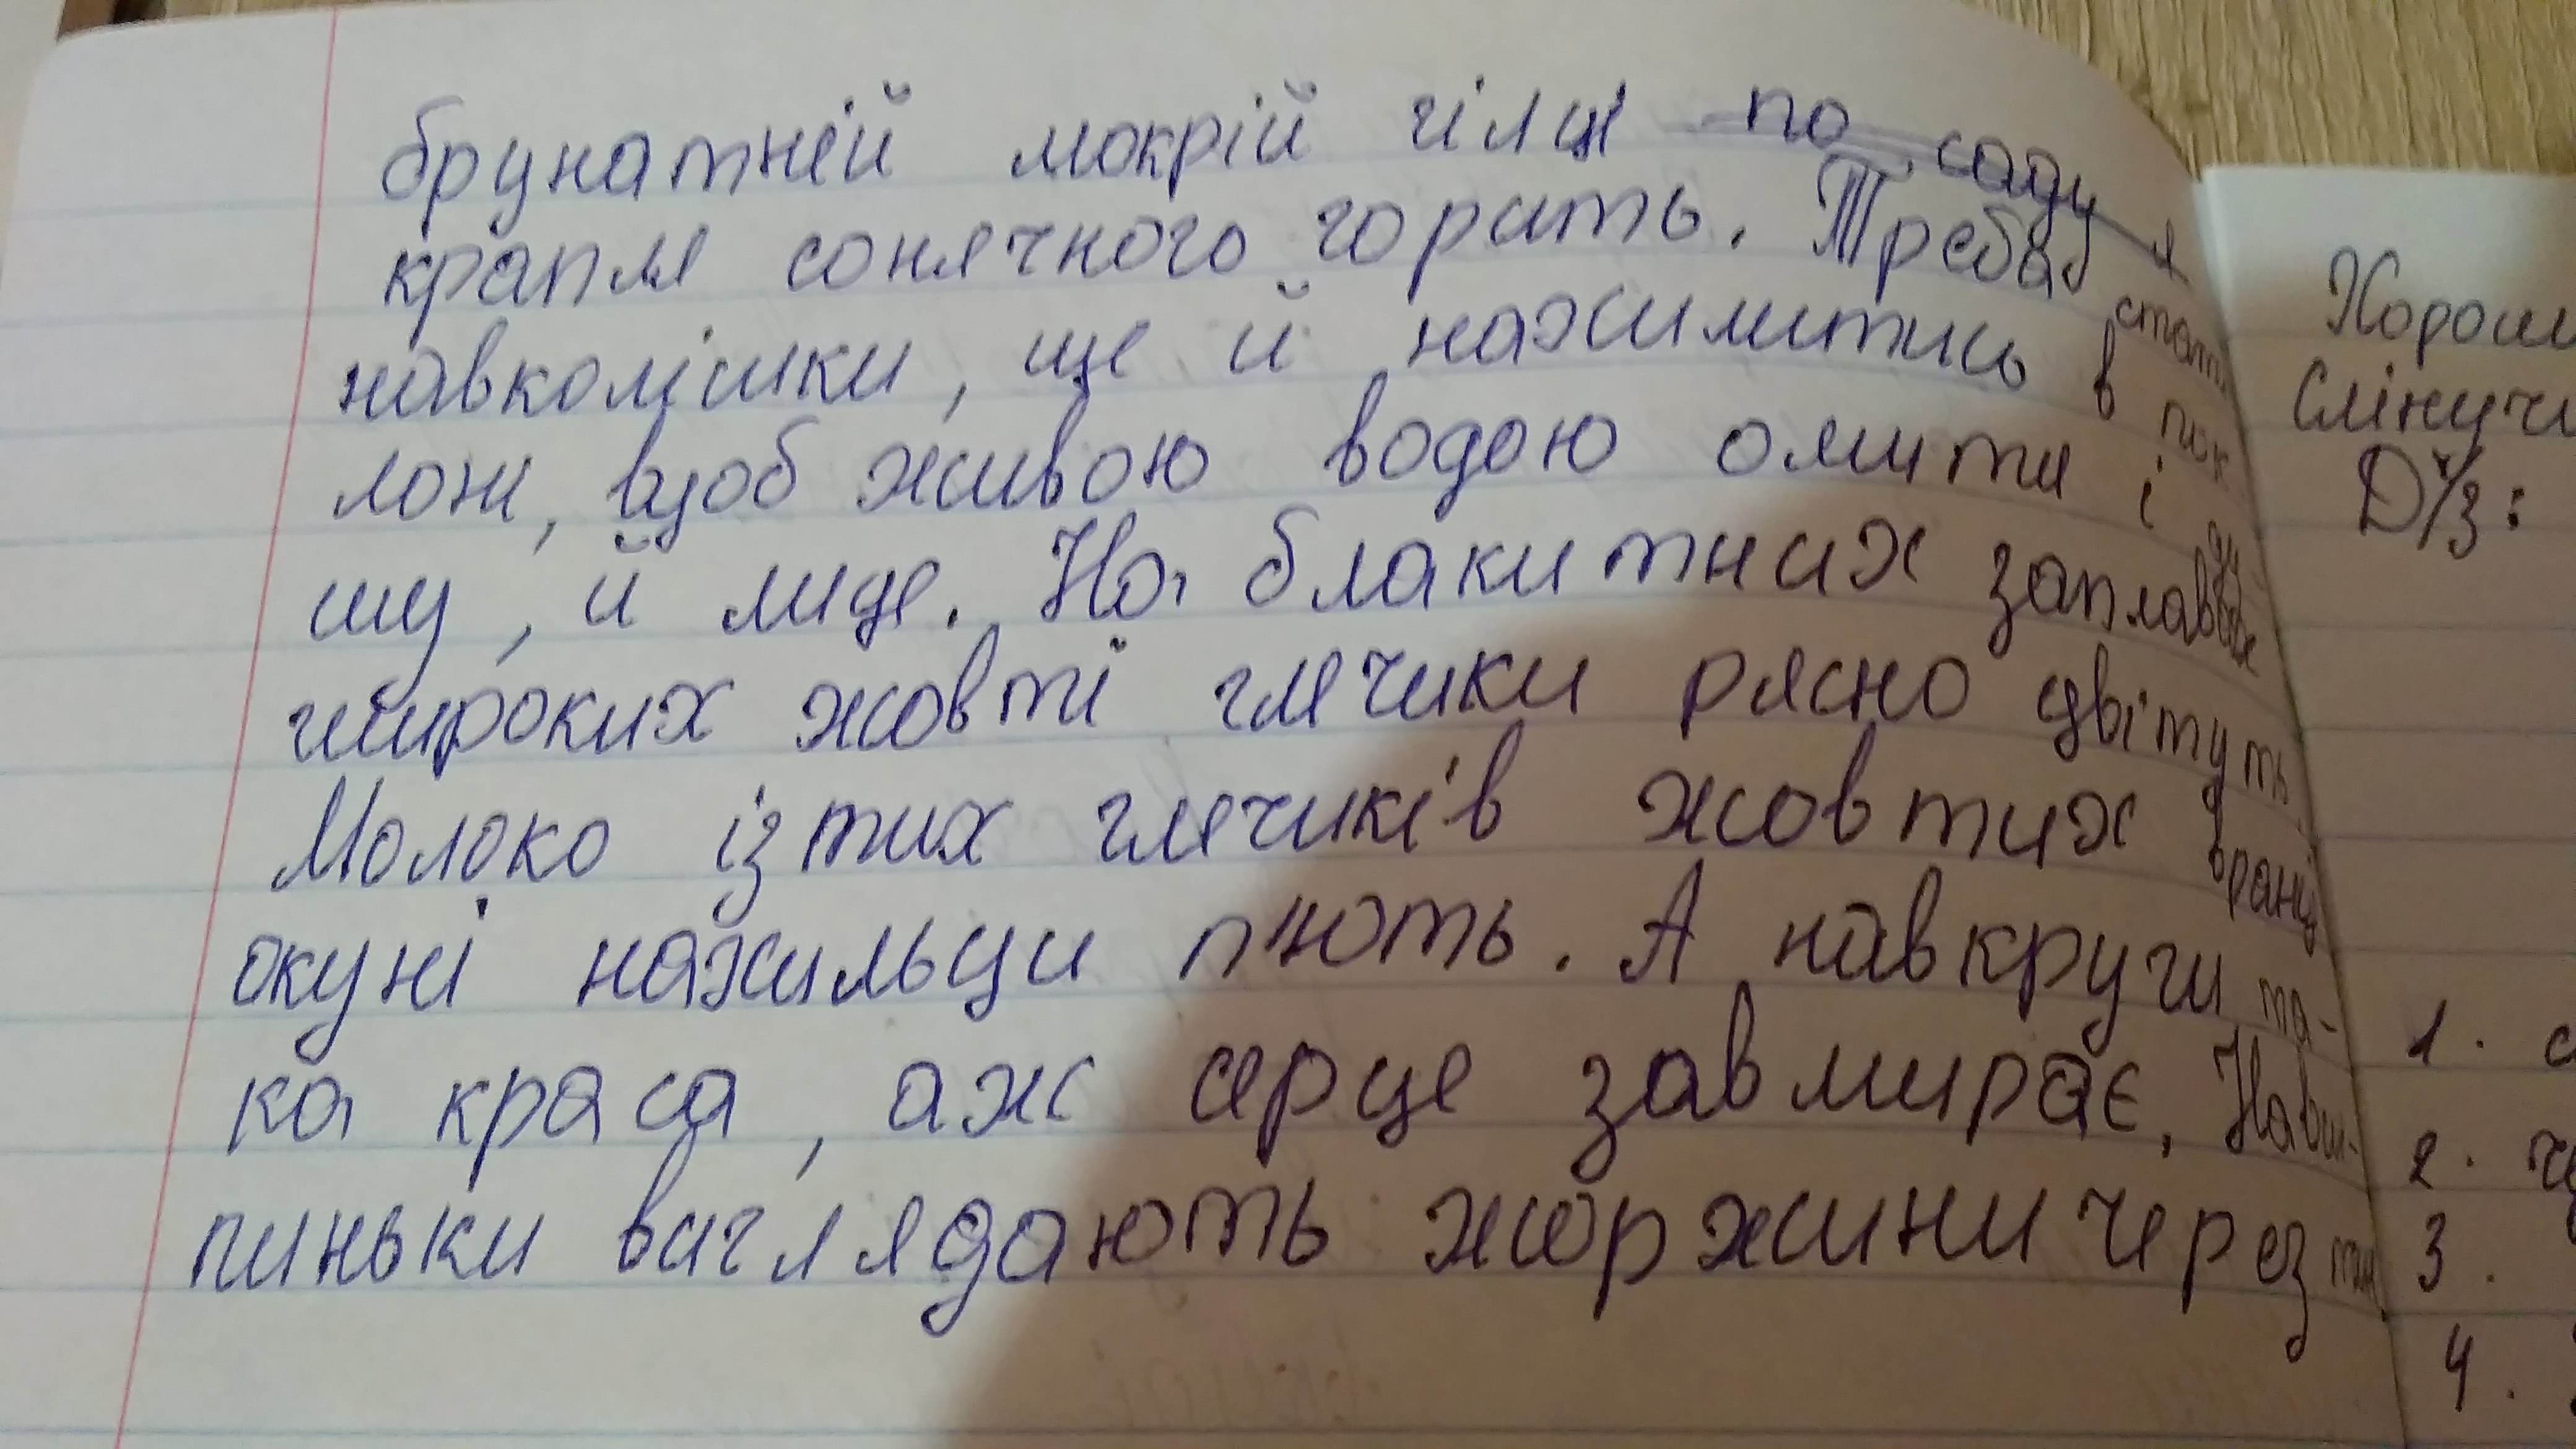 брунатній мокрій гілці по саду я
краплі сонячного горить. Треба стати
навколішки, ще й нахилитись в пок
лоні, щоб живою водою омити і ду
шу, й лице. На блакитних заплавах
широких жовті глечики рясно цвітуть
Молоко із тих глечиків жовтих вранці
окуні нахильци п'ють. А навкруги та-
ка краса, аж серце завмирає. Навш-
пиньки виглядають жоржини через тин
Хорош
Сліпучи
Д/З:
1. с
2. че
3.
4.